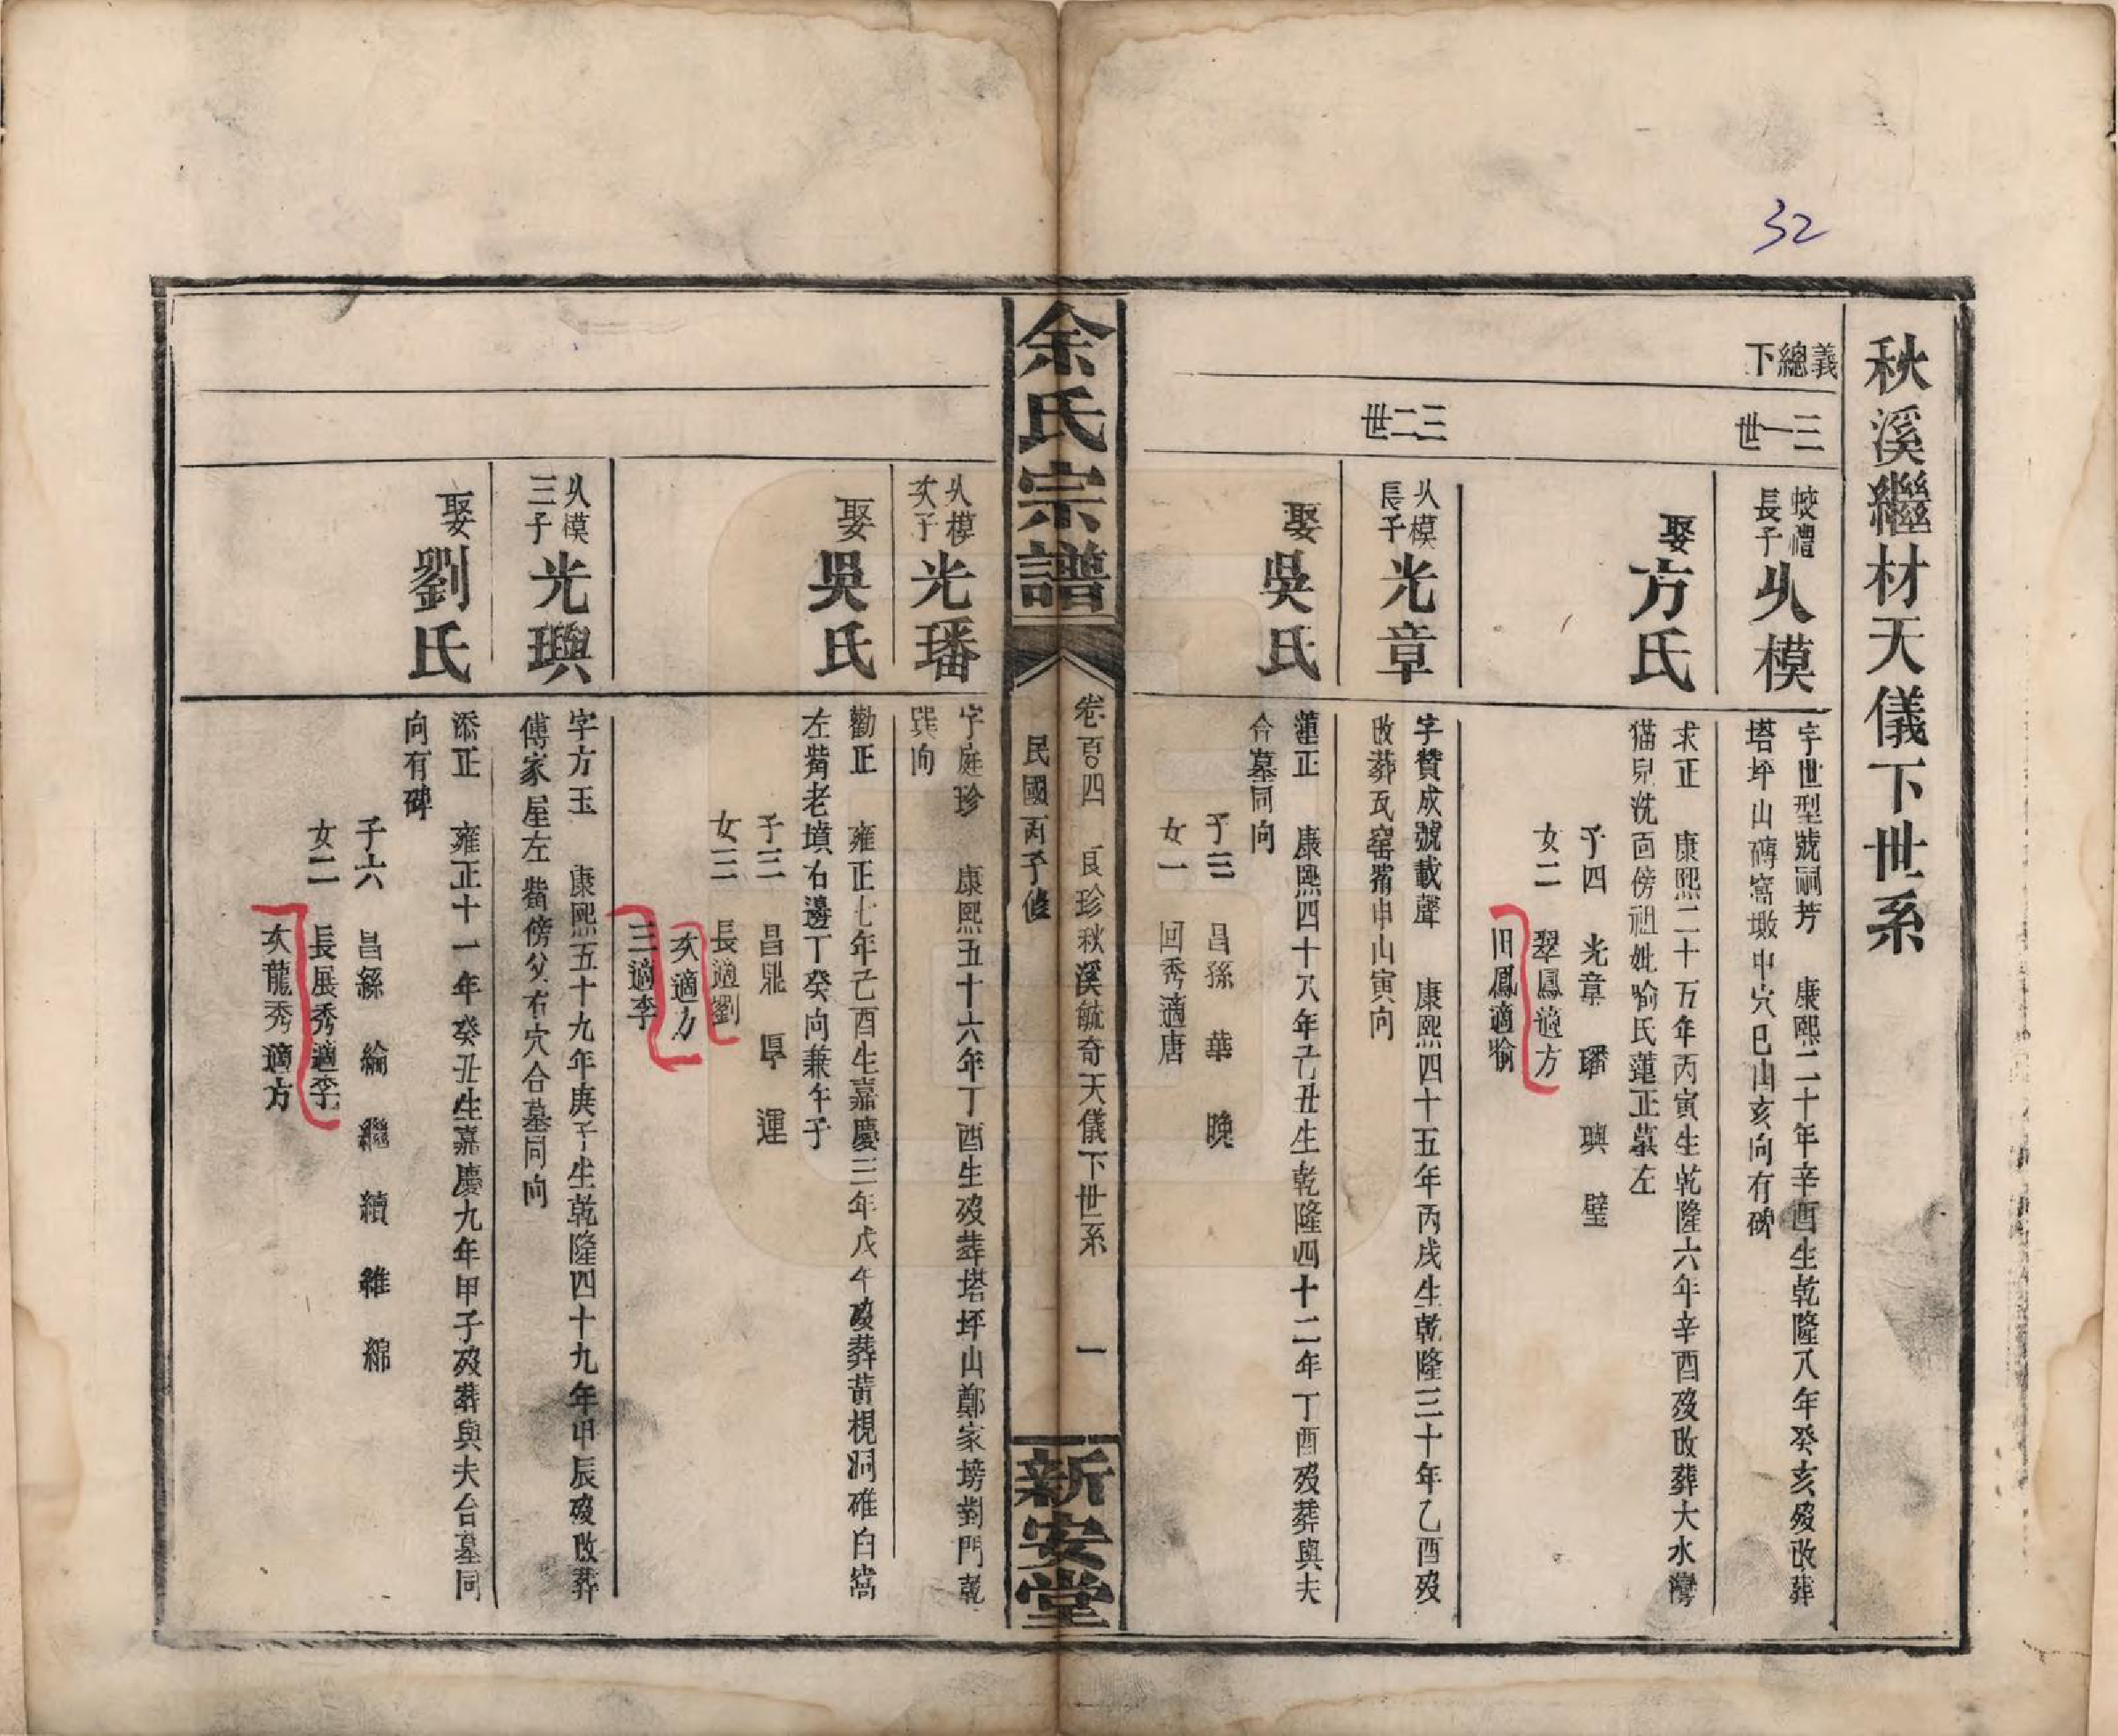 32
秋溪繼材天儀下世系
義總下
三一世
蛟禮長子
乆模
字世型號嗣芳 康熙二十年辛酉生乾隆八年癸亥歿改葬
塔坪山磚窩墩中穴巳山亥向有碑
娶方氏
求正 康熙二十五年丙寅生乾隆六年辛酉歿改葬大水灣
猫兒洗面傍祖妣喻氏蓮正墓左
子四 光章 璠 璵 璧
女二 翠鳳適方
旧鳳適喻
三二世
乆模長子
光章
字贊成號載聲 康熙四十五年丙戌生乾隆三十年乙酉歿
改葬瓦窑嘴申山寅向
娶吳氏
蓮正 康熙四十八年己丑生乾隆四十二年丁酉歿葬與夫
合墓同向
子三 昌孫 華 晚
女一 回秀適唐
余氏宗譜
卷百四 良珍秋溪毓奇天儀下世系 一
民國丙子修
新安堂
乆模次子
光璠
字庭珍 康熙五十六年丁酉生歿葬塔坪山鄭家塝對門乾
巽向
娶吳氏
勸正 雍正七年己酉生嘉慶三年戊午歿葬黃梘洞碓臼窩
左嘴老墳右邊丁癸向兼午子
子三 昌鼎 厚 運
女三 長適劉
次適方
三適李
乆模三子
光璵
字方玉 康熙五十九年庚子生乾隆四十九年甲辰歿改葬
傅家屋左嘴傍父右穴合墓同向
娶劉氏
添正 雍正十一年癸丑生嘉慶九年甲子歿葬與夫合墓同
向有碑
子六 昌繇 綸 繼 續 維 綿
女二 長展秀適李
次龍秀適方